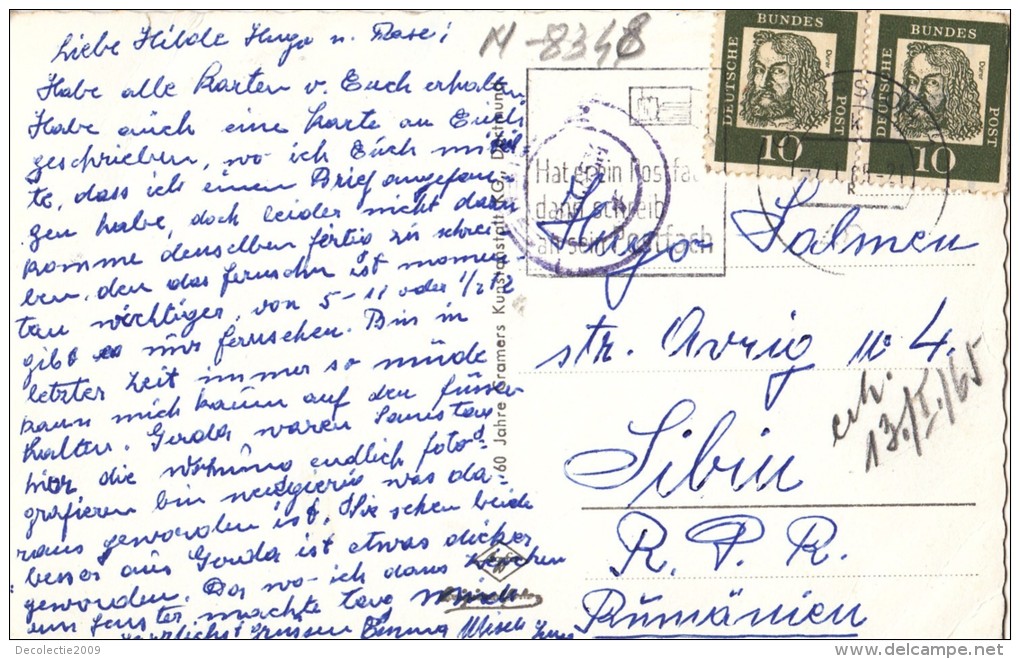 Liebe Hilde Hugo u. Rasei
Habe alle Karten v. Euch erhalten
Habe auch eine Karte an Euch
geschrieben, wo ich Euch mitteil-
te, dass ich einen Brief angefan-
gen habe, doch leider nicht dazu
komme denselben fertig zu schrei-
ben, den das fernsehn ist momen-
tan wichtiger, von 5-11 oder 1/2 12
gibt es nur fernsehen. Bin in
letzter Zeit immer so müde
kann mich kaum auf den füssen
halten. Gerda waren Samstag
hier die Wohnung endlich foto-
grafieren bin neugierig was da-
raus geworden ist. Sie sehen beide
besser aus Gerda ist etwas dicker
geworden. Das wo ich dans
am Fenster machte
Herzlichst grüssen Emma Misch
M-8348
60 Jahre Cramers Kunstanstalt KG, Dortmund
Hat er ein Postfach
dann schreib
an sein Postfach
DEUTSCHE BUNDES POST
Dürer
10
DEUTSCHE BUNDES POST
Dürer
10
Hugo Salmen
str. Avrig nr 4.
Sibiu
R. P. R.
Rumänien
erh.
13./I./65
Decolectie2009
delcampe.net